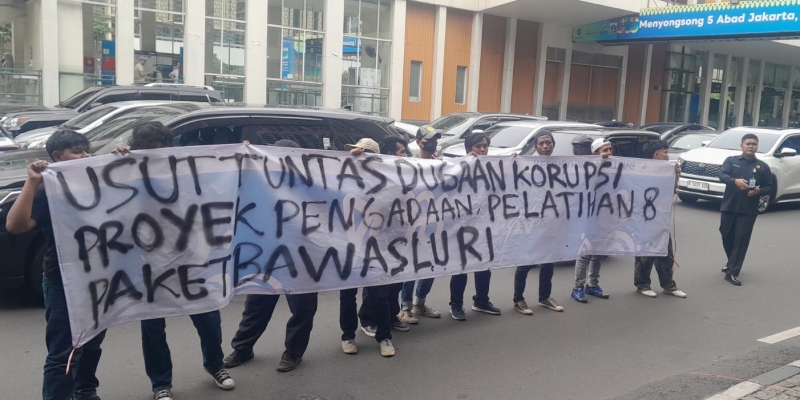 Menyongsong 5 Abad Jakarta,
USUT TUNTAS DUGAAN KORUPSI
PROYEK PENGADAAN, PELATIHAN 8
PAKET BAWASLU RI